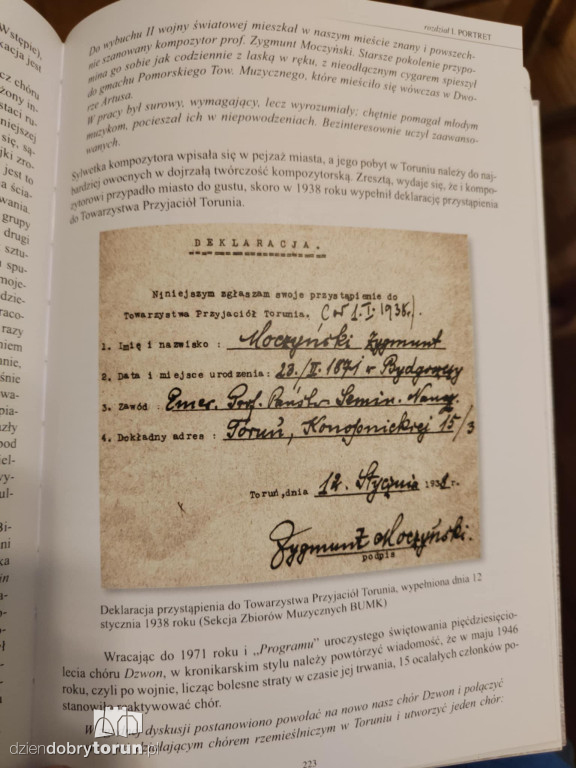 rozdział I. PORTRET
Wstępie),
kacja jest
Do wybuchu II wojny światowej mieszkał w naszym mieście znany i powszech-
nie szanowany kompozytor prof. Zygmunt Moczyński. Starsze pokolenie przypo-
mina go sobie jak codziennie z laską w ręku, z nieodłącznym cygarem spieszył
do gmachu Pomorskiego Tow. Muzycznego, które mieściło się wówczas w Dwo-
rze Artusa.
W pracy był surowy, wymagający, lecz wyrozumiały; chętnie pomagał młodym
muzykom, pocieszał ich w niepowodzeniach. Bezinteresownie uczył zaawanso-
wanych.
Sylwetka kompozytora wpisała się w pejzaż miasta, a jego pobyt w Toruniu należy do naj-
bardziej owocnych w dojrzałą twórczość kompozytorską. Zresztą, wydaje się, że i kompo-
zytorowi przypadło miasto do gustu, skoro w 1938 roku wypełnił deklarację przystąpienia
do Towarzystwa Przyjaciół Torunia.
DEKLARACJA.
Niniejszym zgłaszam swoje przystąpienie do
Towarzystwa Przyjaciół Torunia. (w 1.I.1938r.).
1. Imię i nazwisko : Moczyński Zygmunt
2. Data i miejsce urodzenia: 23./II. 1871 w Bydgoszczy
3. Zawód : Emer. Prof. Państw. Semin. Naucz.
4. Dokładny adres : Toruń, Konopnickiej 15/3
Toruń,dnia 12. Stycznia 1938 r.
Zygmunt Moczyński.
podpis
Deklaracja przystąpienia do Towarzystwa Przyjaciół Torunia, wypełniona dnia 12
stycznia 1938 roku (Sekcja Zbiorów Muzycznych BUMK)
Wracając do 1971 roku i „Programu” uroczystego świętowania pięćdziesięcio-
lecia chóru Dzwon, w kronikarskim stylu należy powtórzyć wiadomość, że w maju 1946
roku, czyli po wojnie, licząc bolesne straty w czasie jej trwania, 15 ocalałych członków po-
stanowiło reaktywować chór.
dyskusji postanowiono powołać na nowo nasz chór Dzwon i połączyć
działającym chórem rzemieślniczym w Toruniu i utworzyć jeden chór:
223
dziendobrytorun.pl